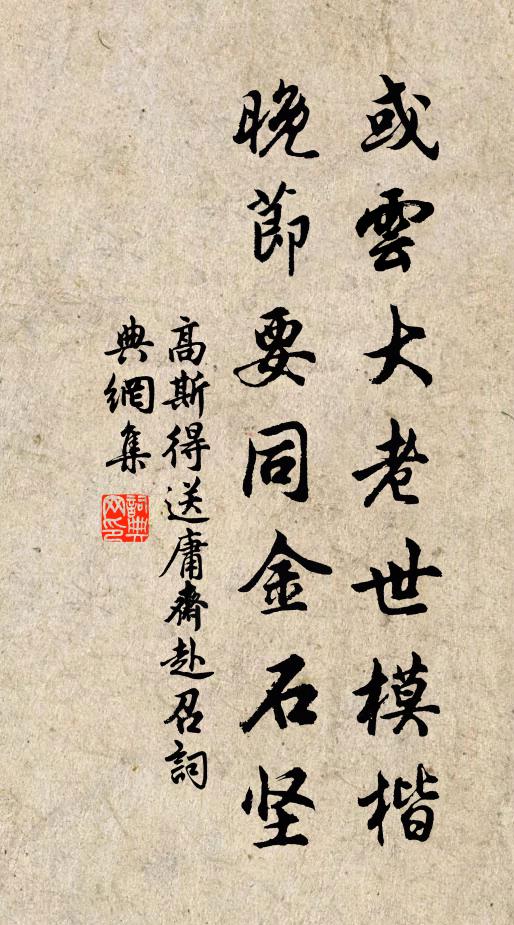 或雲大老世模楷
晚節要同金石坚
高斯得送庸齋赴召詞
典網集
詞典網印